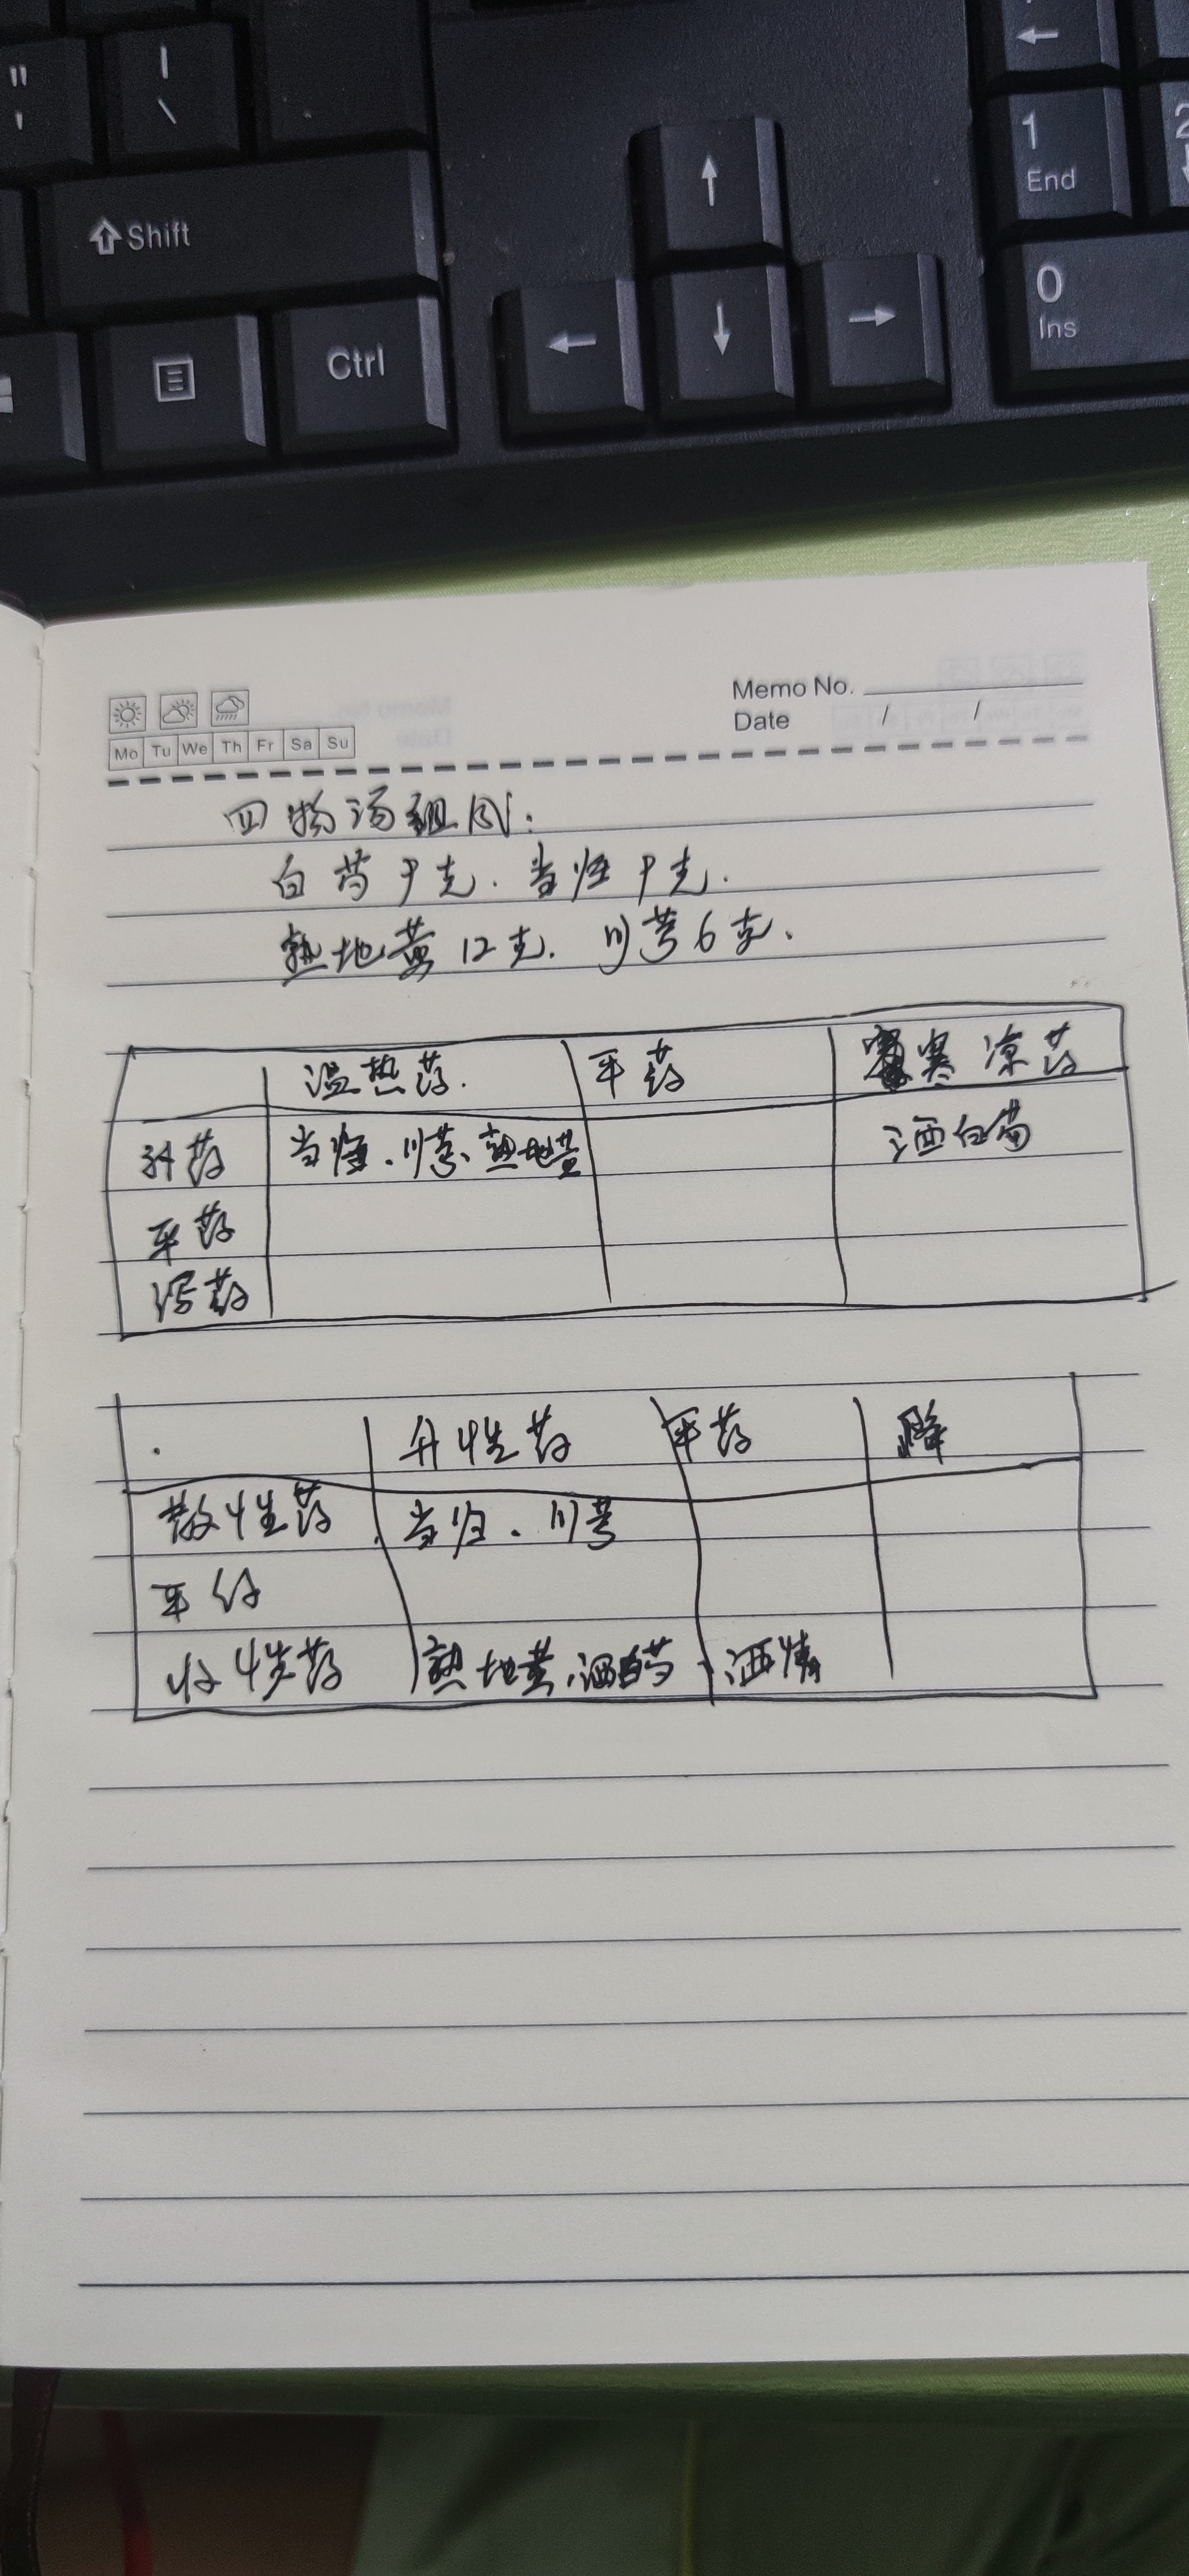 "
'
|
\
←
1
End
2
↓
⇧Shift
↑
0
Ins
←
↓
→
Ctrl
Memo No.
Date / /
Mo Tu We Th Fr Sa Su
四物汤组成:
白芍9克.当归9克.
熟地黄12克.川芎6克.
温热药. 平药 寒凉药
补药 当归.川芎、熟地黄 酒白芍
平药
泻药
升性药 平药 降
散性药 当归.川芎
平
收性药 熟地黄.酒白芍